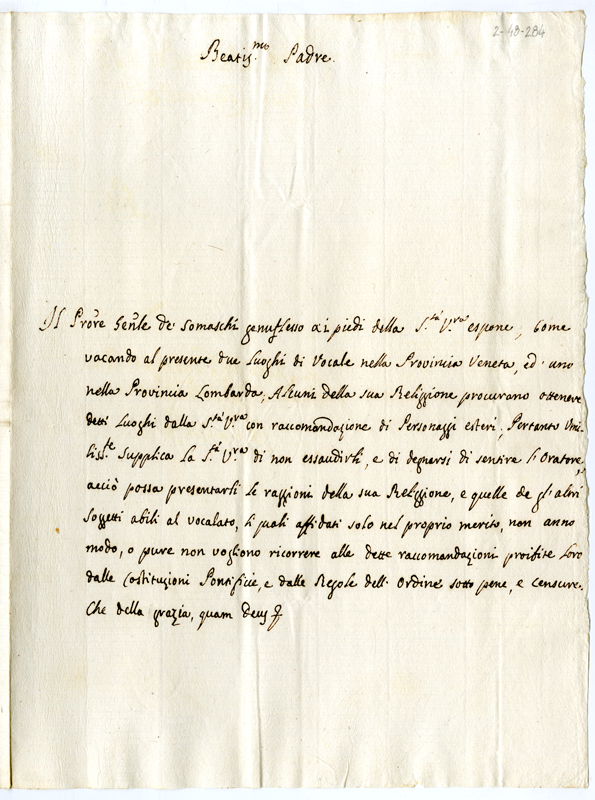 2-48-284
Beatis.mo Padre.
Il Prōre Gen̄le de' Somaschi genuflesso a i piedi della S.tà V.ra espone, Come
vacando al presente due Luoghi di Vocale nella Provincia Veneta, ed' uno
nella Provincia Lombarda, Alcuni della sua Religione procurano ottenere
detti Luoghi dalla S.tà V.ra con raccomandazione di Personaggi esteri; Pertanto Umi-
liss.te supplica La S.tà V.ra di non essaudirli, e di degnarsi di sentire l'Oratore,
acciò possa presentarli le raggioni della sua Religione, e quelle de gl'altri
Soggetti abili al vocalato, li quali affidati solo nel proprio merito, non anno
modo, o pure non vogliono ricorrere alle dette raccomandazioni proibite Loro
dalle Costituzioni Pontificie, e dalle Regole dell'Ordine sotto pene, e Censure.
Che della grazia, quam Deus